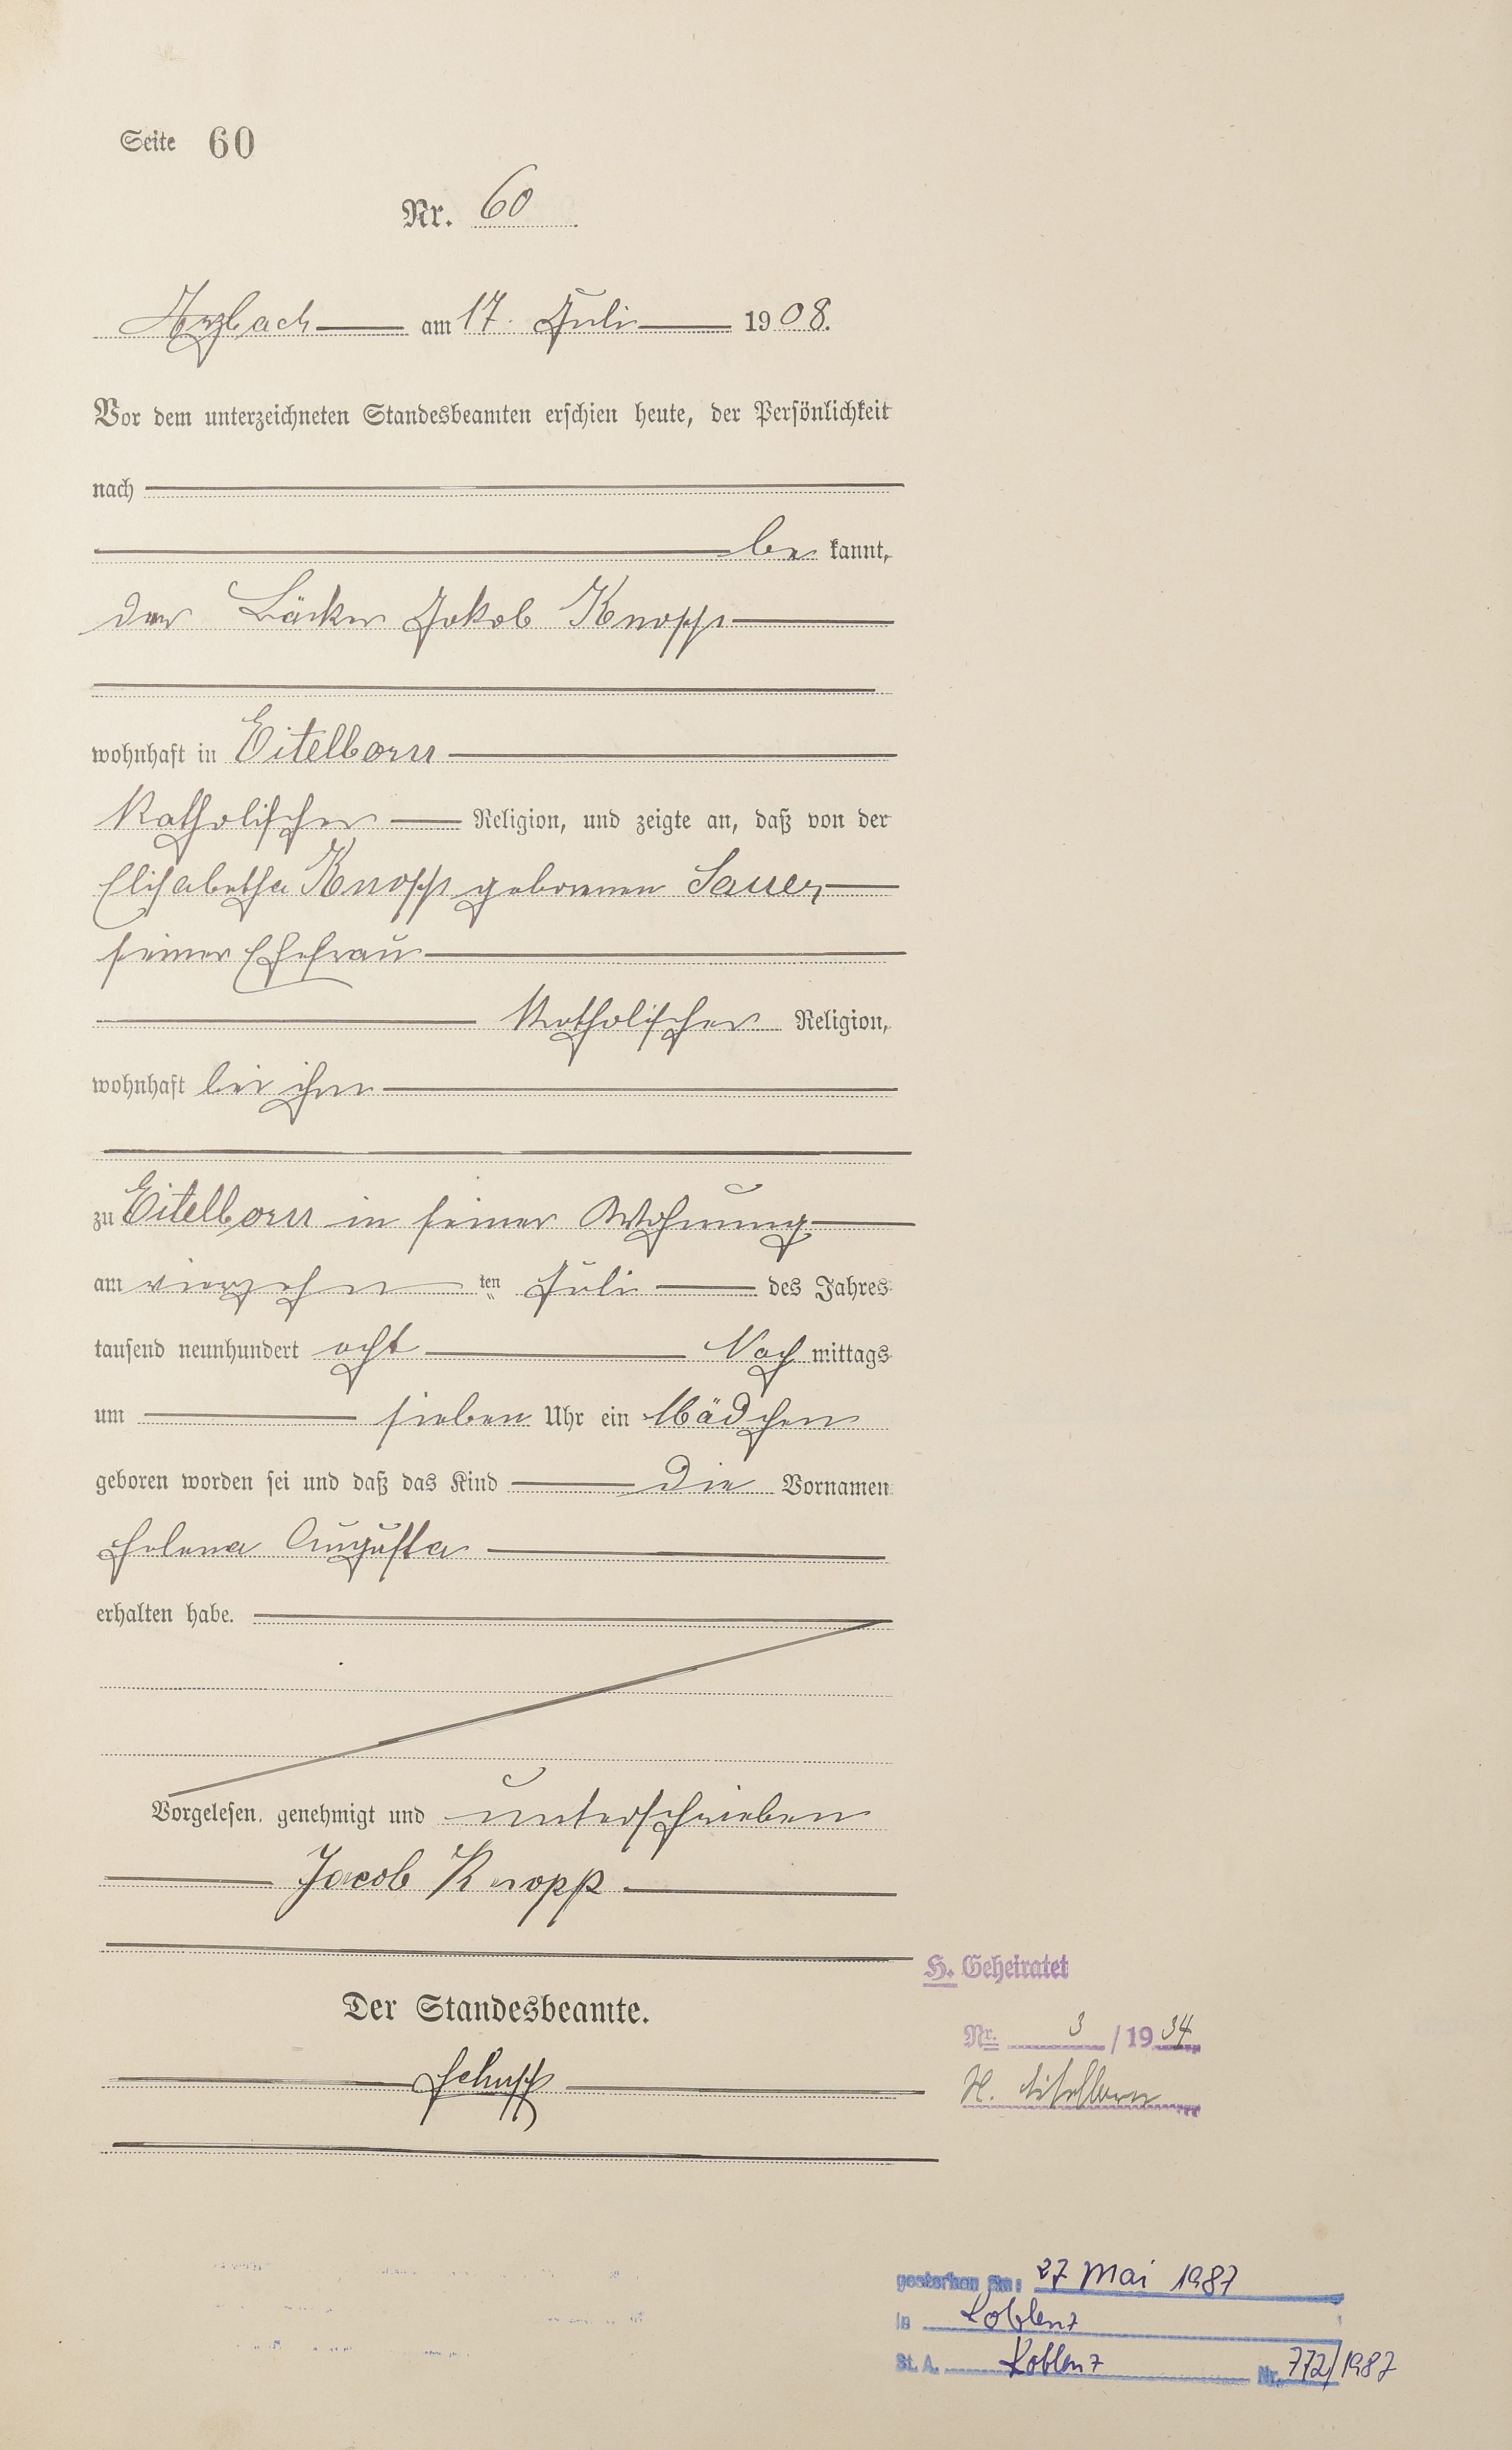 Seite 60
Nr. 60
Arzbach am 17. Juli 1908.
Vor dem unterzeichneten Standesbeamten erschien heute, der Persönlichkeit
nach
be kannt,
der Bäcker Jakob Knopp
wohnhaft in Eitelborn
katholischer Religion, und zeigte an, daß von der
Elisabetha Knopp geborenen Sauer,
seiner Ehefrau
katholischer Religion,
wohnhaft bei ihm
zu Eitelborn in seiner Wohnung
am vierzehn ten Juli des Jahres
tausend neunhundert acht Nach mittags
um sieben Uhr ein Mädchen
geboren worden sei und daß das Kind die Vornamen
Helena Augusta
erhalten habe.
Vorgelesen, genehmigt und unterschrieben
Jacob Knopp
H. Geheiratet
Der Standesbeamte.
Nr. 3 / 1934
Eitelborn
gestorben am: 27 Mai 1987
in Koblenz
St. A. Koblenz Nr. 772/1987